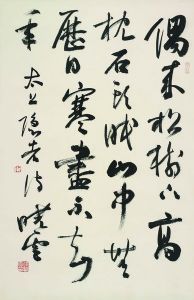 偶來松樹下高
枕石頭眠山中無
歷日寒盡不知
年
太上隱者詩 曉雲